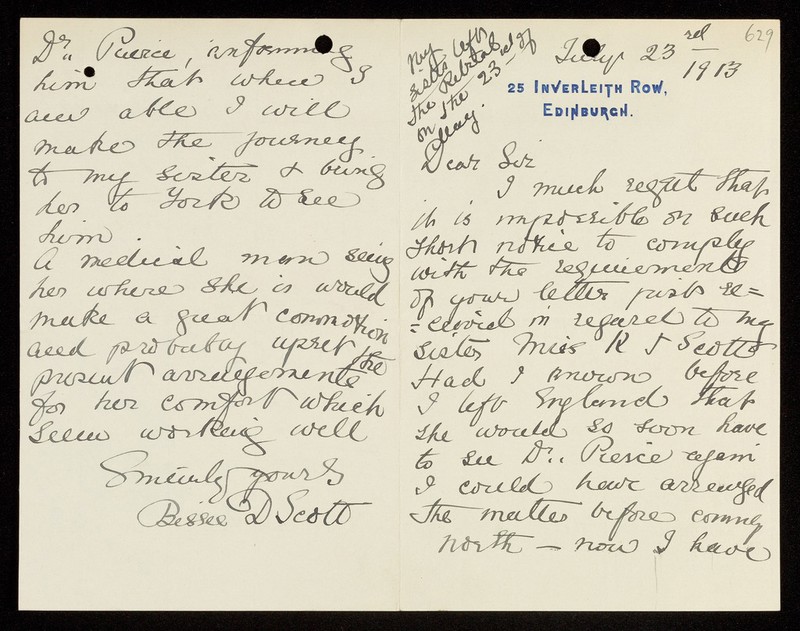 629
July 23rd
1913
25 INVERLEITH ROW,
EDINBURGH.
My left
sister left
the Retreat
on the 23rd of
May.
Dear Sir
I much regret that
it is impossible on such
short notice to comply
with the requirements
of your letter just re=
=ceived in regard to my
sister Miss K J Scott
Had I known before
I left England that
she would so soon have
to see Dr.. Pierce again
I could have arranged
the matter before coming
north — now I have
Dr.. Pierce, informing
him that when I
am able I will
make the journey
to my sister & bring
her to York to see
him.
A medical man seeing
her where she is would
make a great commotion
and probably upset the
present arrangements
for her comfort which
seem working well
Sincerely yours
Bessie D Scott